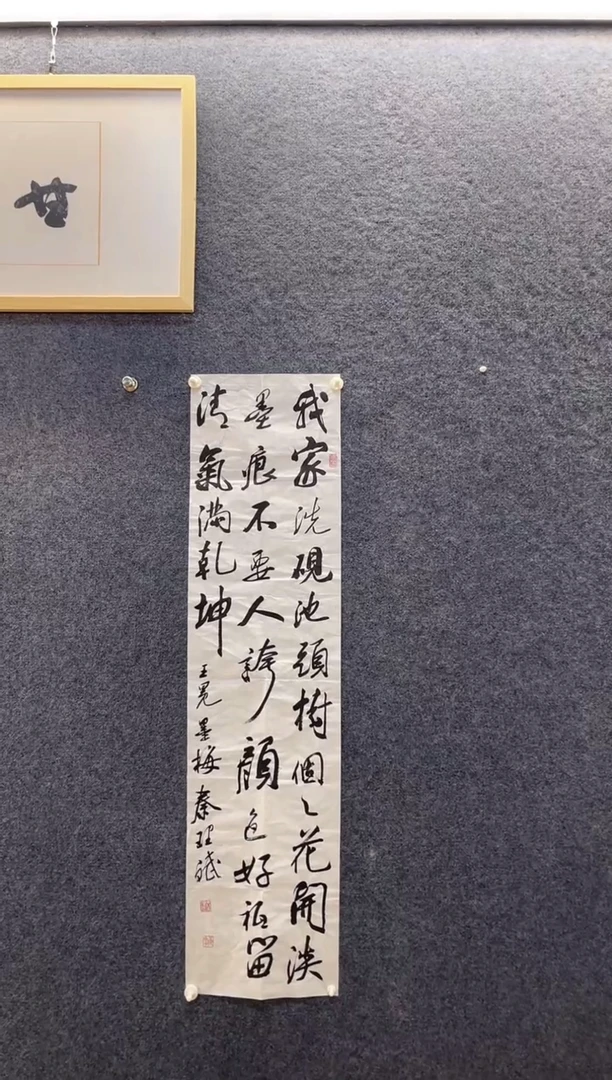 我家洗硯池頭樹個〻花開淡
墨痕不要人誇顏色好祇留
清氣滿乾坤 王冕墨梅 秦理斌